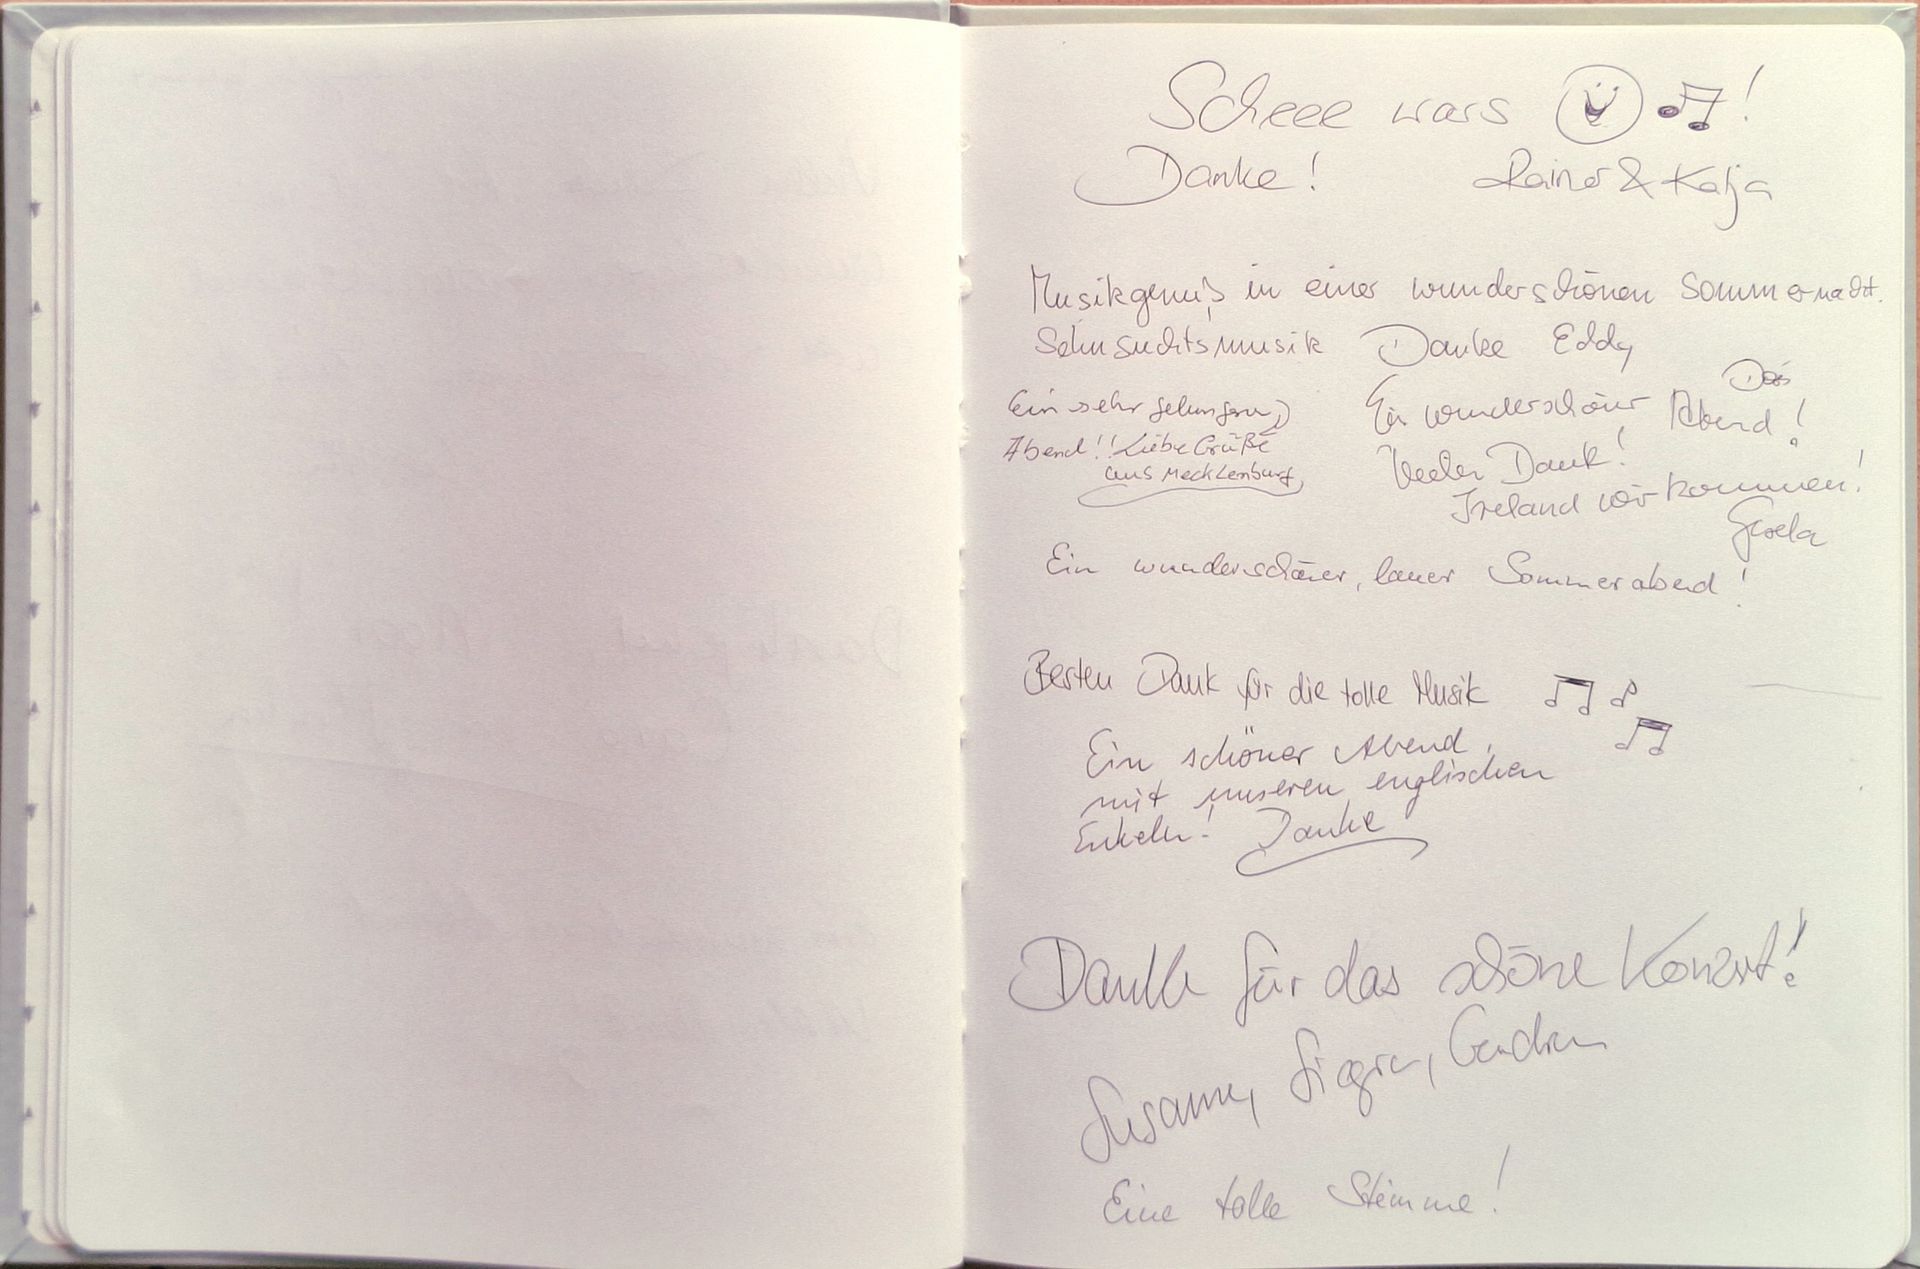 Scheee wars !
Danke! Rainer & Katja
Musikgenuß in einer wunderschönen Sommernacht.
Sehnsuchtsmusik Danke Eddy
Ein sehr gelungener
Abend!! Liebe Grüße
aus Mecklenburg
Ein wunderschöner Abend!
Vielen Dank!
Ireland wir kommen!
Gisela
Ein wunderschöner, lauer Sommerabend!
Besten Dank für die tolle Musik
Ein schöner Abend,
mit unseren englischen
Enkeln! Danke
Danke für das schöne Konzert!
Susanne,
Eine tolle Stimme!